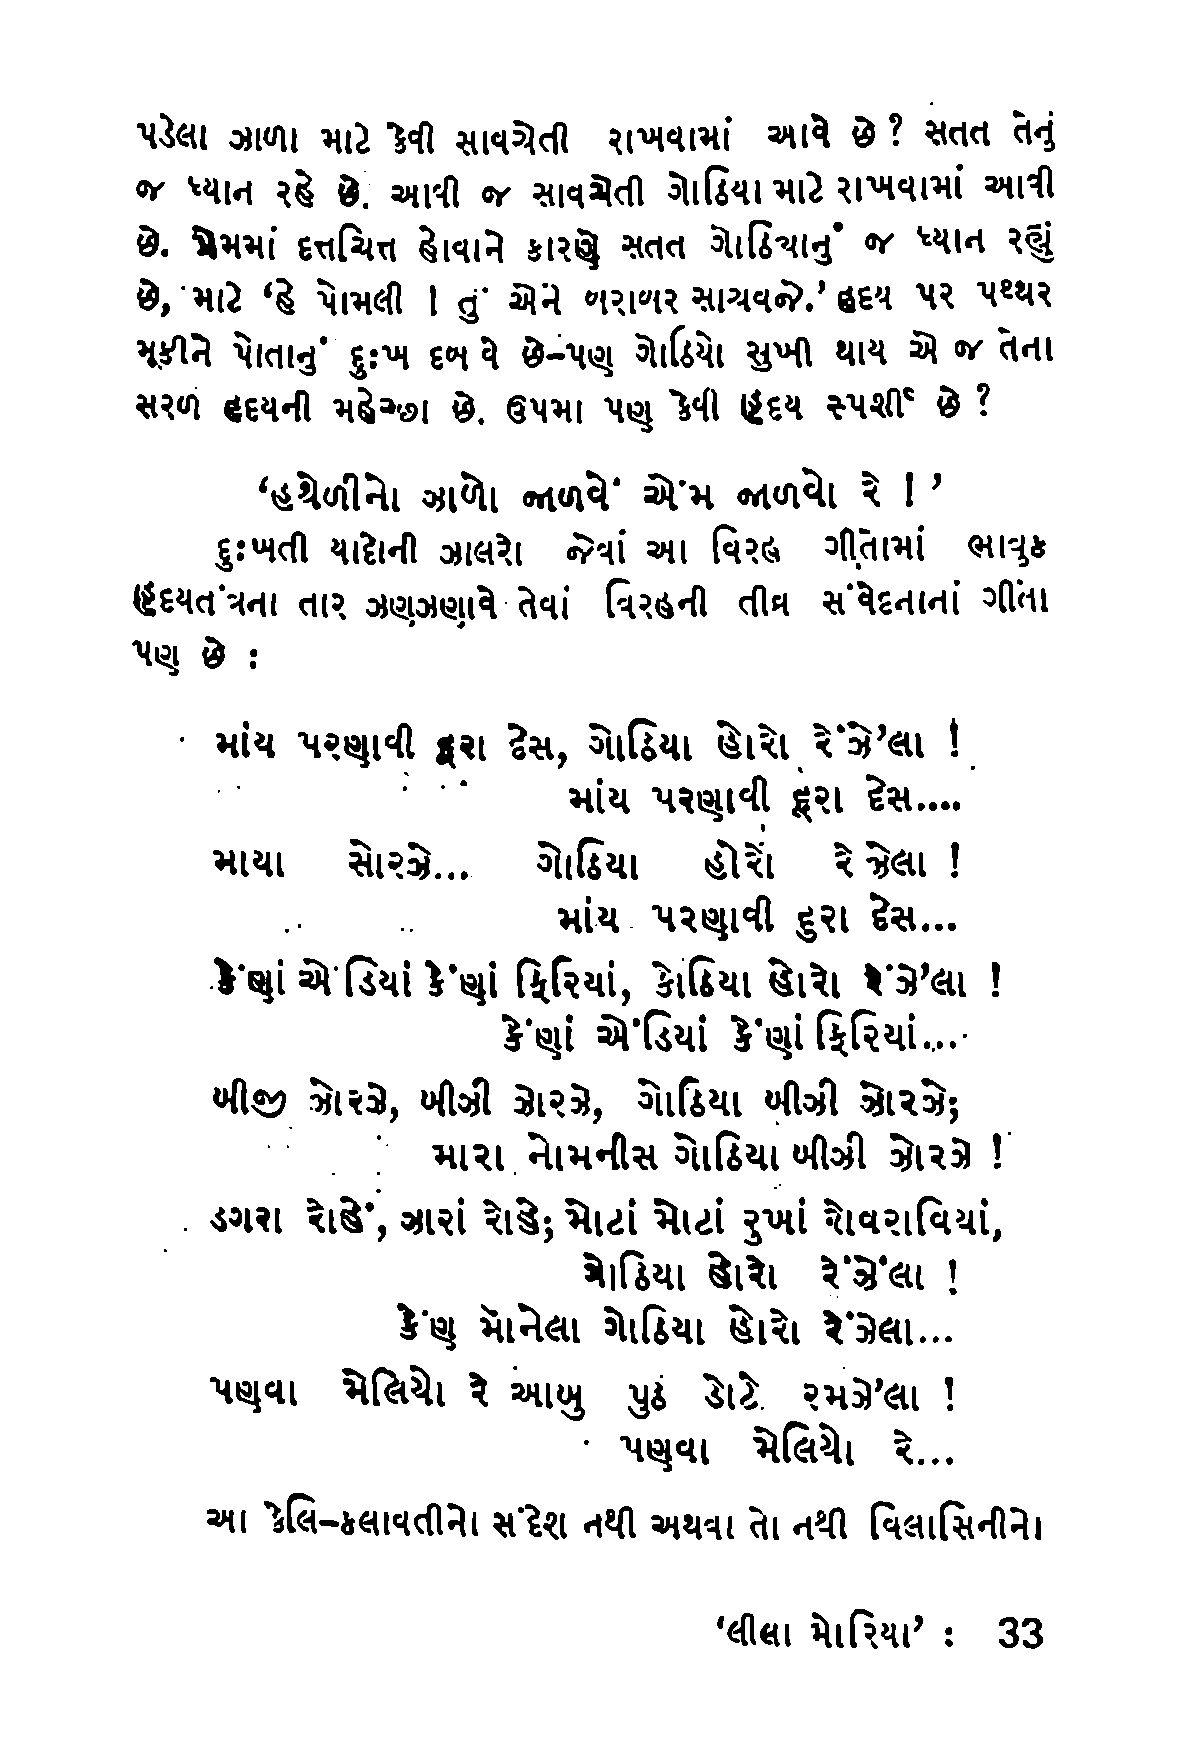 પડેલા ઝાળા માટે કેવી સાવચેતી રાખવામાં આવે છે? સતત તેનું
જ ધ્યાન રહે છે. આવી જ સાવચેતી ગોઠિયા માટે રાખવામાં આવી
છે. પ્રેમમાં દત્તચિત્ત હોવાને કારણે સતત ગોઠિયાનું જ ધ્યાન રહ્યું
છે, માટે ‘હે પોમલી ! તું એને બરાબર સાચવજે.’ હૃદય પર પથ્થર
મૂકીને પોતાનું દુઃખ દબાવે છે–પણ ગોઠિયો સુખી થાય એ જ તેના
સરળ હૃદયની મહેચ્છા છે. ઉપમા પણ કેવી હૃદય સ્પર્શી છે ?
‘હથેળીનો ઝાળો જાળવે‘ એ‘મ જાળવો રે ! ’
દુઃખતી યાદોની ઝાલરો જેવાં આ વિરહ ગીતોમાં ભાવુક
હૃદયતંત્રના તાર ઝણઝણાવે તેવાં વિરહની તીવ્ર સંવેદનાનાં ગીતો
પણ છે :
માંય પરણાવી દૂરા દેસ, ગોઠિયા હોરો રેંઝે’લા !
માંય પરણાવી દૂરા દેસ....
માયા સોરઝે... ગોઠિયા હોરોં રે ઝેલા !
માંય પરણાવી દુરા દેસ...
કેંણાં એંડિયાં કેંણાં ફિરિયાં, કોઠિયા હોરો રેંઝે’લા !
કેંણાં એંડિયાં કેંણાં ફિરિયાં....
બીજી ઝોરઝે, બીઝી ઝોરઝે, ગોઠિયા બીઝી ઝોરઝે;
મારા નોમનીસ ગોઠિયા બીઝી ઝોરઝે !
ડગરા રોહેં, ઝારાં રોહે; મોટાં મોટાં રુખાં રોવરાવિયાં,
ગોઠિયા હોરો રેંઝેંલા !
કેંણ મોંનેલા ગોઠિયા હોરો રેંઝેલા...
પણવા મેલિયો રે આબુ પુઠં ડોટે રમઝે’લા !
પણવા મેલિયો રે...
આ કેલિ–કલાવતીનો સંદેશ નથી અથવા તો નથી વિલાસિનીનો
‘લીલા મોરિયા’ : 33